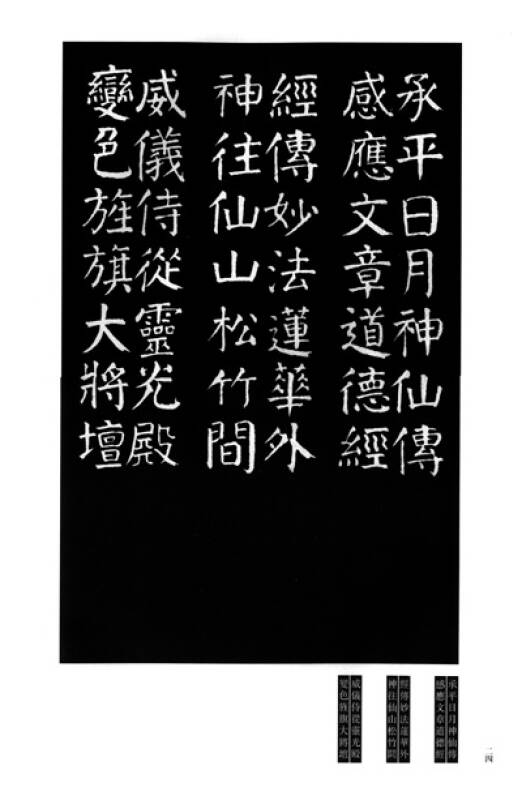 承平日月神仙傳
感應文章道德經
經傳妙法蓮華外
神往仙山松竹間
威儀侍從靈光殿
變色旌旗大將壇
承平日月神仙傳
感應文章道德經
經傳妙法蓮華外
神往仙山松竹間
威儀侍從靈光殿
變色旌旗大將壇
二四